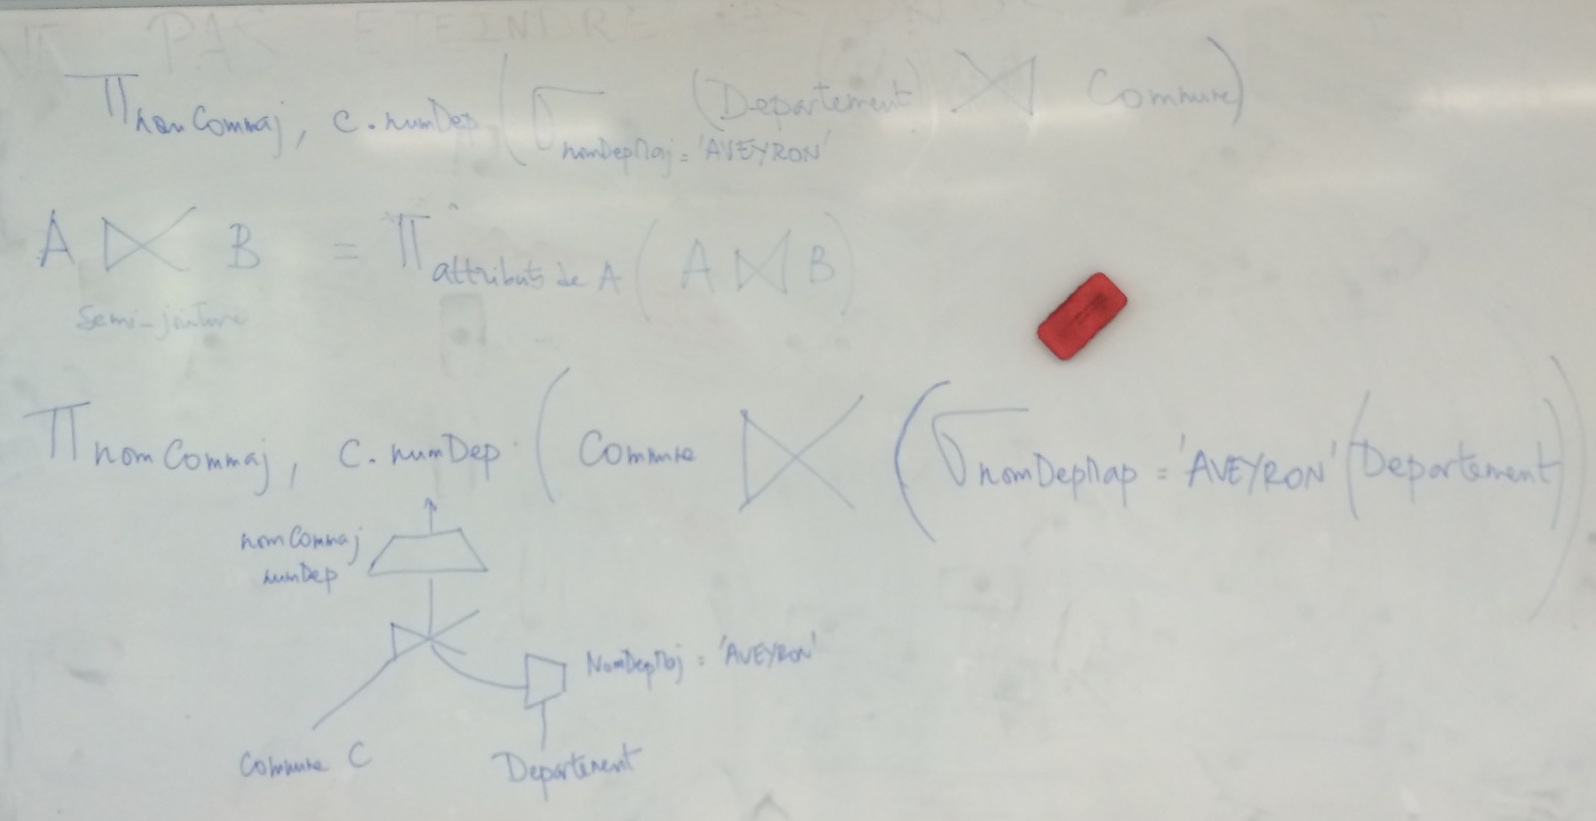 PAS ETEINDRE
Π nomCommaj, c.numDep (σ nomDepMaj = 'AVEYRON' (Departement) ⋈ Commune)
A ⋉ B = Π attributs de A (A ⋈ B)
Semi-jointure
Π nomCommaj, C.numDep (Commune ⋉ (σ nomDepMap = 'AVEYRON' (Departement)
nomCommaj
numDep
NomDepMaj = 'AVEYRON'
Commune C
Departement